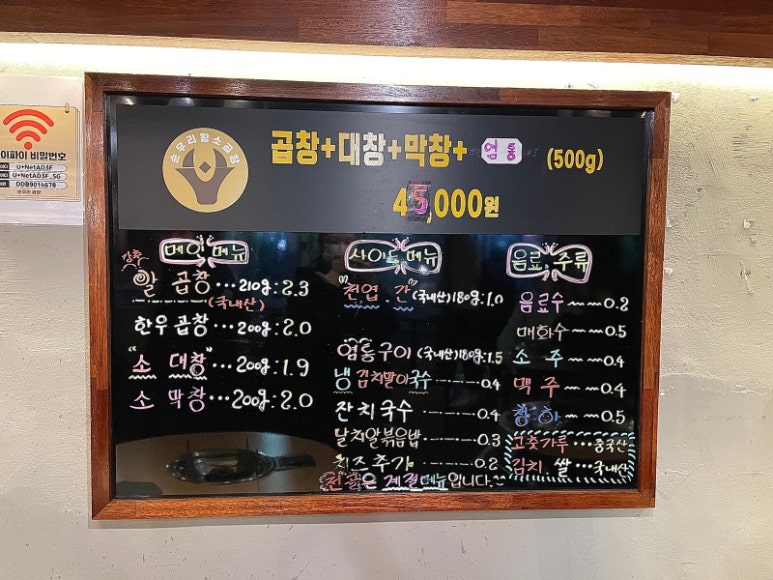 이파이 비밀번호
U+NetAD3F
U+NetAD3F_5G
DDB9016678
순우리왕소곱창
곱창+대창+막창+염통 (500g)
45,000원
메인 메뉴
강추
알 곱창...210g:2.3
(국내산)
한우곱창...200g:2.0
"소 대창"...200g:1.9
소 막창...200g:2.0
사이드 메뉴
"천엽.간"(국내산)180g:1.0
염통구이(국내산)180g:1.5
냉김치말이국수------0.4
잔치국수------0.4
날치알볶음밥------0.3
치즈추가------0.2
천엽은 계절메뉴입니다.
음료, 주류
음료수~~0.2
매화수~~0.5
소 주~~0.4
맥 주~~0.4
청 하~~0.5
고춧가루...중국산
김치, 쌀...국내산